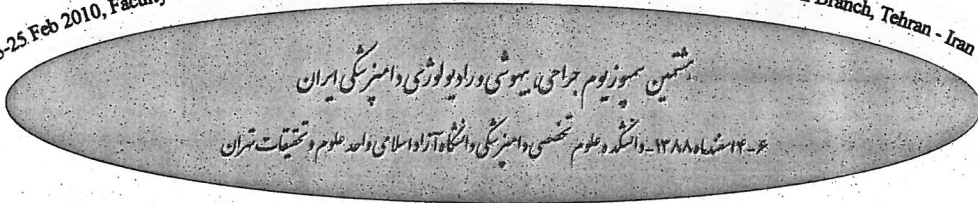 -25 Feb 2010, Faculty
Branch, Tehran - Iran
هشتمین سمپوزیوم جراحی، بیهوشی و رادیولوژی دامپزشکی ایران
۶-۴ اسفندماه ۱۳۸۸-دانشکده علوم تخصصی دامپزشکی دانشگاه آزاد اسلامی واحد علوم و تحقیقات تهران